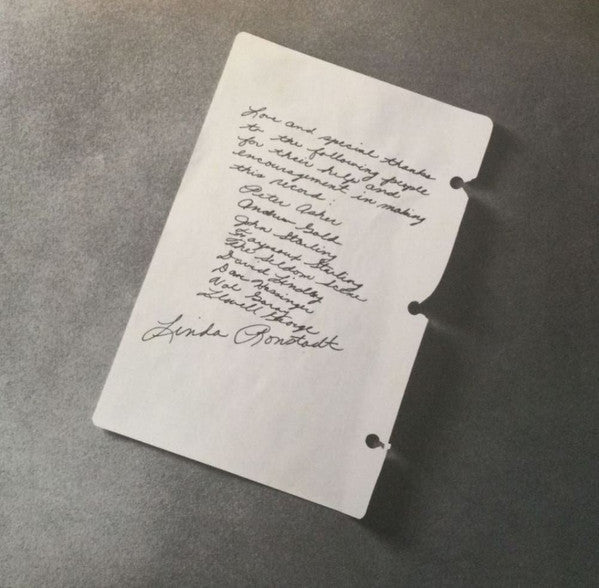 Love and special thanks
to the following people
for their help and
encouragement in making
this record:
Peter Asher
Andrew Gold
John Starling
Fayssoux Starling
The Seldom Scene
David Lindley
Dan
Val Garay
Lowell George
Linda Ronstadt